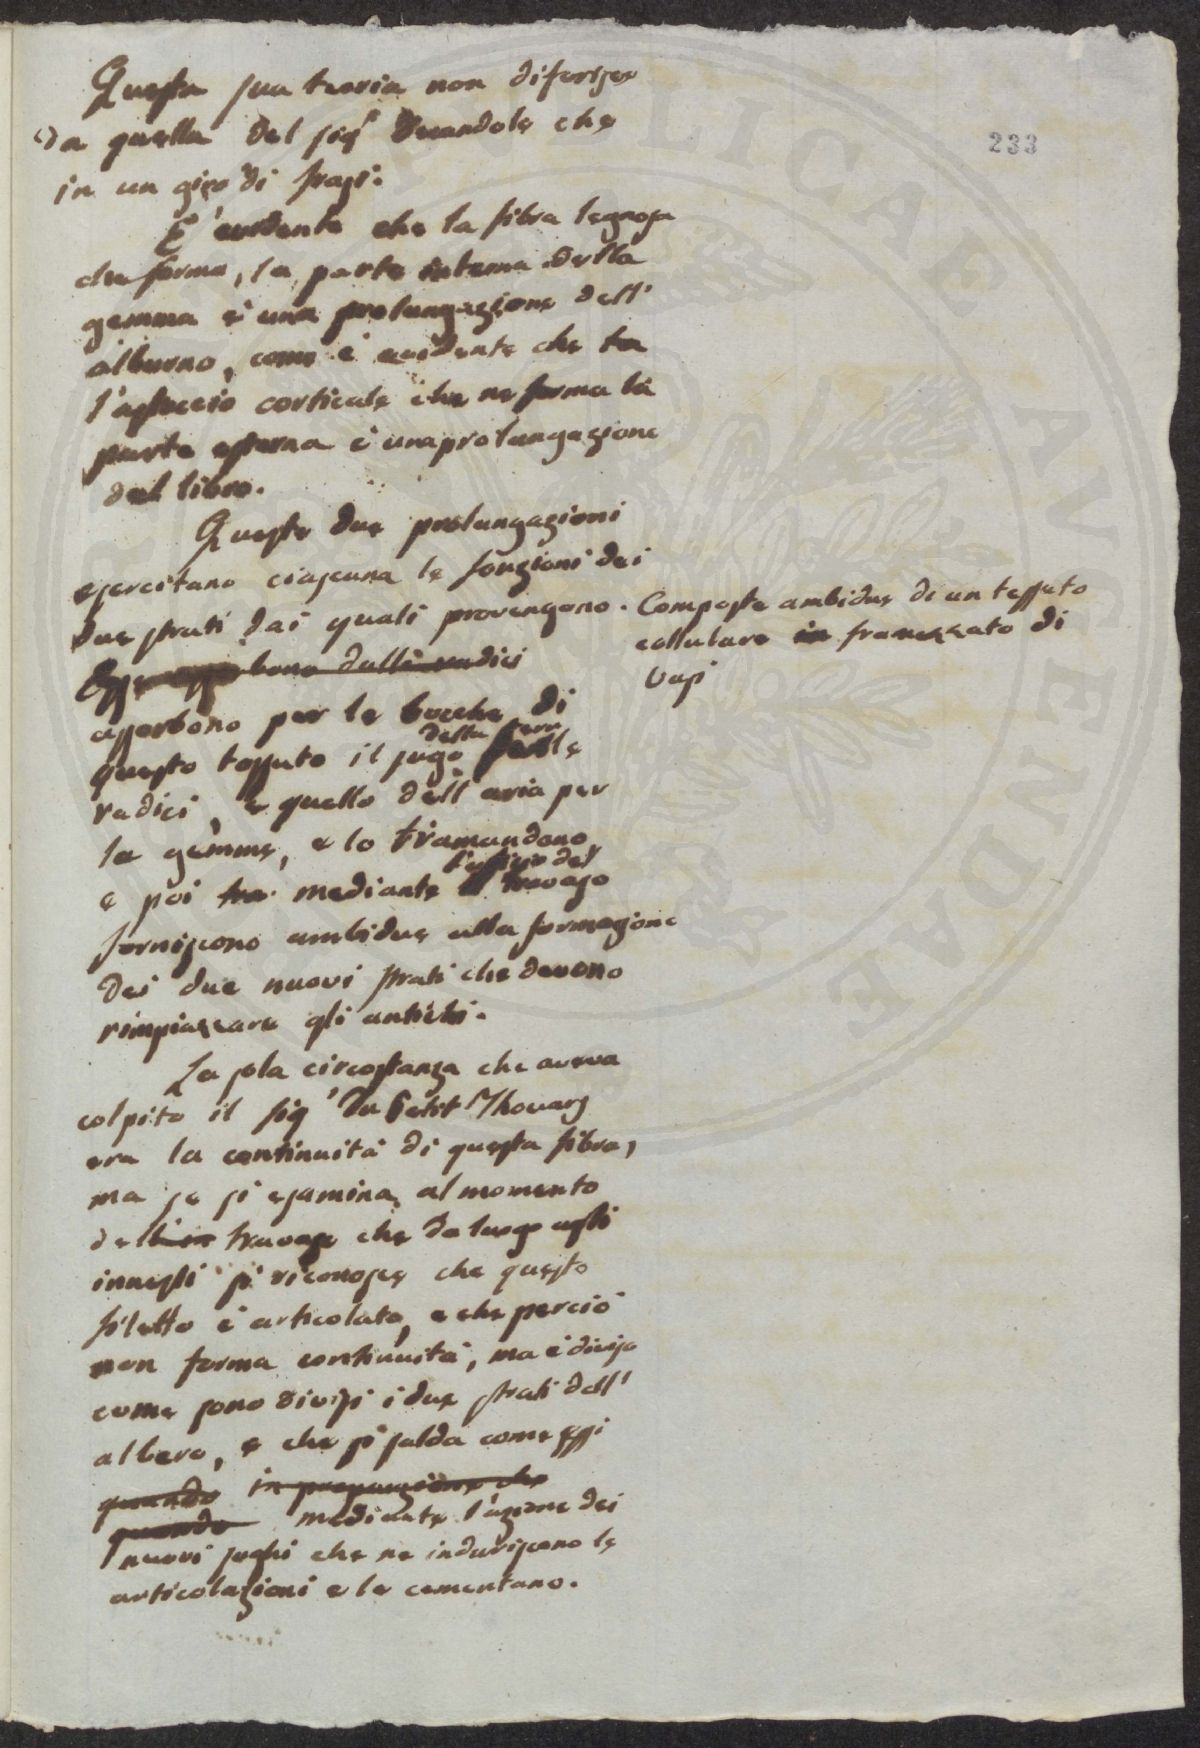 233
Questa sua teoria non diferisce
da quella del sigr Decandole che
in un giro di frasi.
È evidente che la fibra legnosa
che forma, la parte interna della
gemma è una prolungazione dell'
alburno, come è evidente che la
l'astuccio corticale che ne forma la
parte esterna è una prolungazione
del libro.
Queste due prolungazioni
esercitano ciascuna le fonzioni dei
due strati dai quali provengono. Composte ambidue di un tessuto
cellulare in framezzato di
vasi
Esse bono dalle radici
assorbono per le bocche di
questo tessuto il sugo della terra
radici, e quello dell'aria per
le gemme, e lo tramandono,
e poi tra mediante del travaso
forniscono ambidue alla formazione
dei due nuovi strati che devono
rimpiazzare gli antichi.
La sola circostanza che aveva
colpito il sigr Du Petit Thouars
era la continuità di questa fibra,
ma se si esamina, al momento
del travaso che da luogo agli
innesti si riconosce che questo
filetto è articolato, e che perciò
non forma continuità, ma è diviso
come sono divisi i due strati dell'
albero, e che si salda come essi
quando in preparazione che
quando mediante l'azione dei
nuovi sughi che ne induriscono le
articolazioni e le cementano.